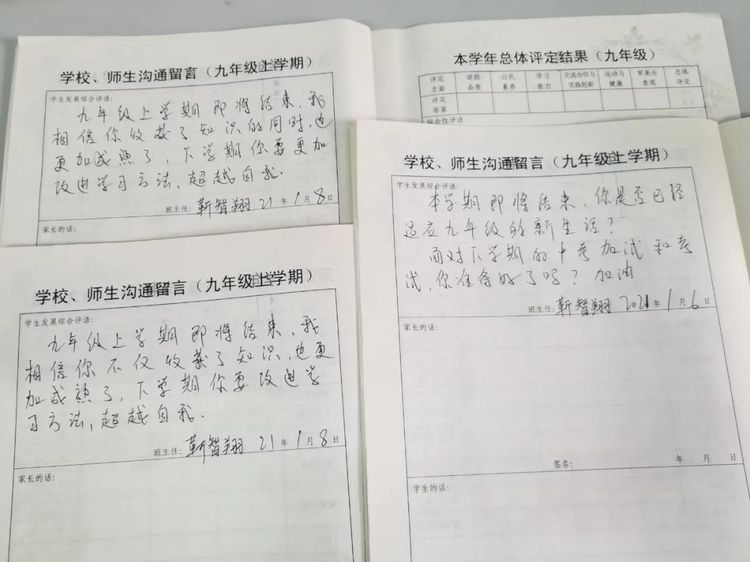 学校、师生沟通留言（九年级上学期）
学生发展综合评语：
九年级上学期即将结束，我
相信你收获了知识的同时，也
更加成熟了，下学期你要更加
改进学习方法，超越自我．
班主任：靳智翔 21年1月8日
家长的话：
本学年总体评定结果（九年级）
评定方面 道德品质 公民素养 学习能力 交流合作与实践创新 运动与健康 审美与表现 总体评定
评定等第
综合性评语
学校、师生沟通留言（九年级上学期）
学生发展综合评语：
九年级上学期即将结束，我
相信你不仅收获了知识，也更
加成熟了，下学期你要改进学
习方法，超越自我．
班主任：靳智翔 21年1月8日
家长的话：
学校、师生沟通留言（九年级上学期）
学生发展综合评语：
本学期即将结束，你是否已经
适应九年级的新生活？
面对下学期的中考加试和考
试，你准备好了吗？加油
班主任：靳智翔 2021年1月6日
家长的话：
签名： 年 月 日
学生的话：